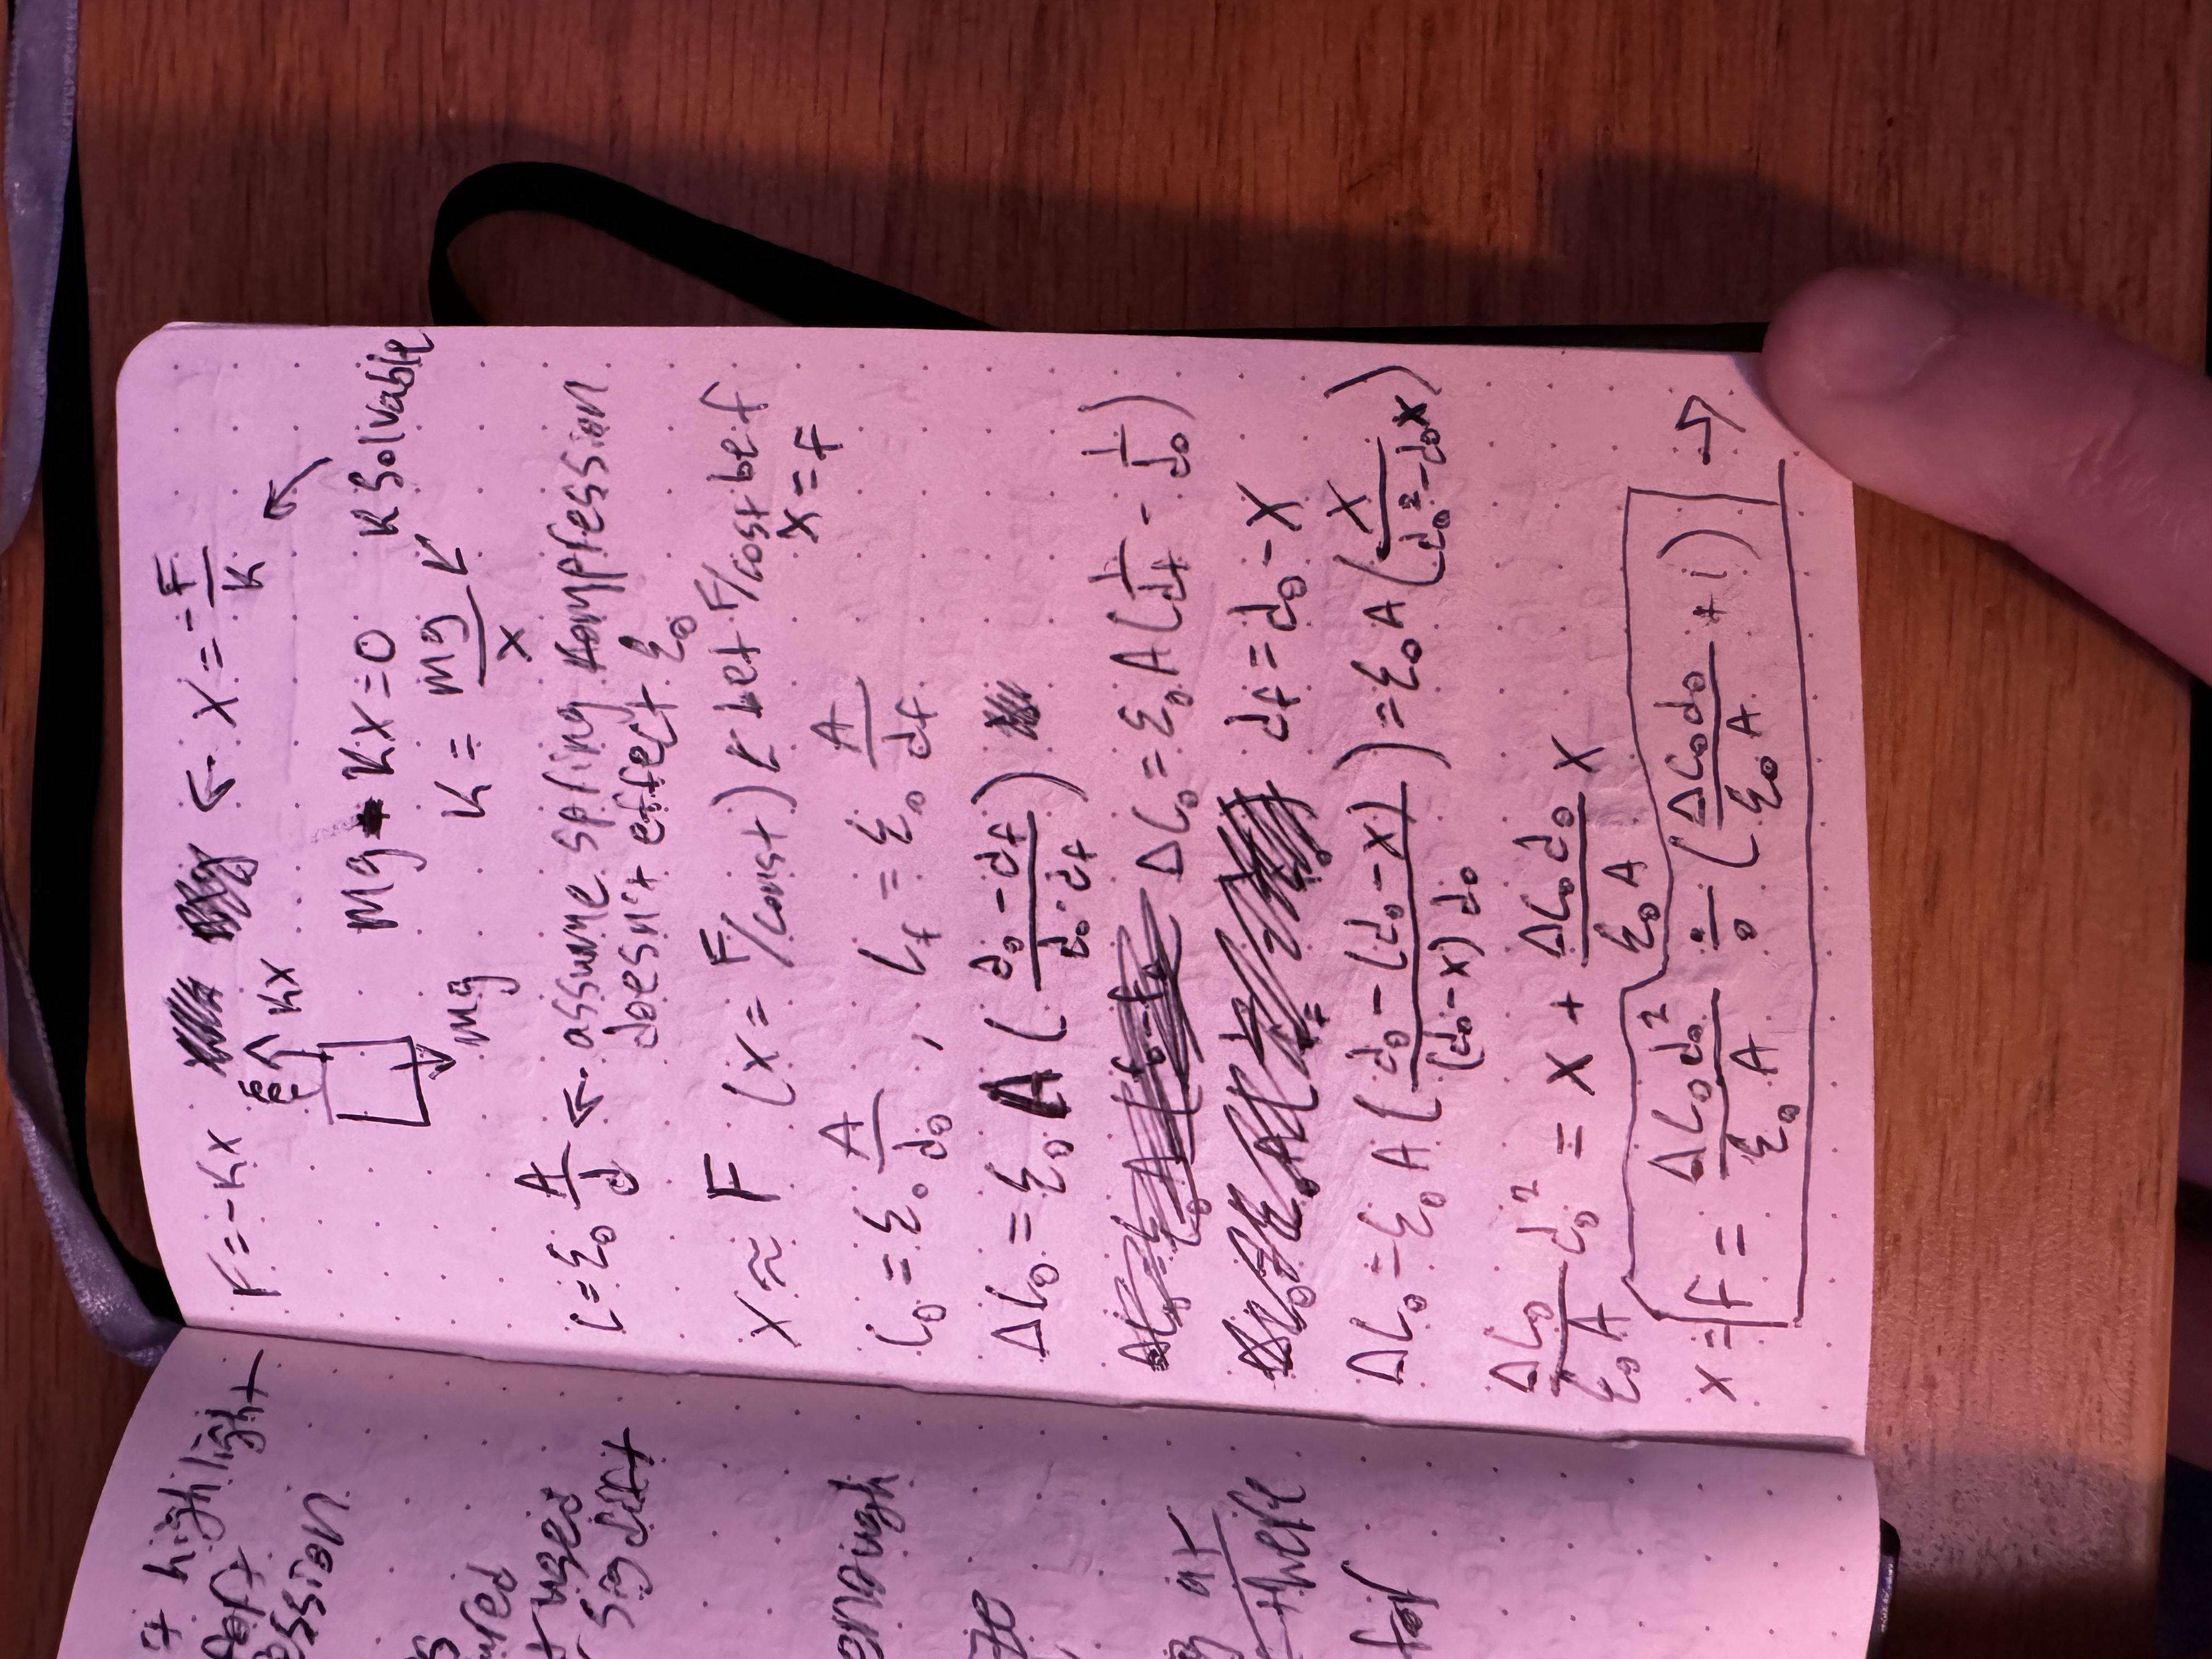 F = -Kx <- x = -F/K
Kx
mg - Kx = 0 K Solvable
mg K = mg/x
C = ε₀ A/d <- assume spring kompression
doesn't effect ε₀
x ≈ F (x = F/const) < let F/cost be f
x = f
C₀ = ε₀ A/d₀ , C_f = ε₀ A/d_f
ΔC₀ = ε₀ A (d₀ - d_f / d₀ · d_f)
ΔC₀ = ε₀ A (1/d_f - 1/d₀)
d_f = d₀ - x
ΔC₀ = ε₀ A (d₀ - (d₀ - x) / (d₀ - x) d₀) = ε₀ A (x / d₀² - d₀x)
ΔC₀/ε₀A d₀² = x + ΔC₀d₀/ε₀A x
x = f = ΔC₀d₀²/ε₀A ÷ (ΔC₀d₀/ε₀A + 1) ->
highlight
ssion
ured
t uses
sig diff
enough
ze
there
for